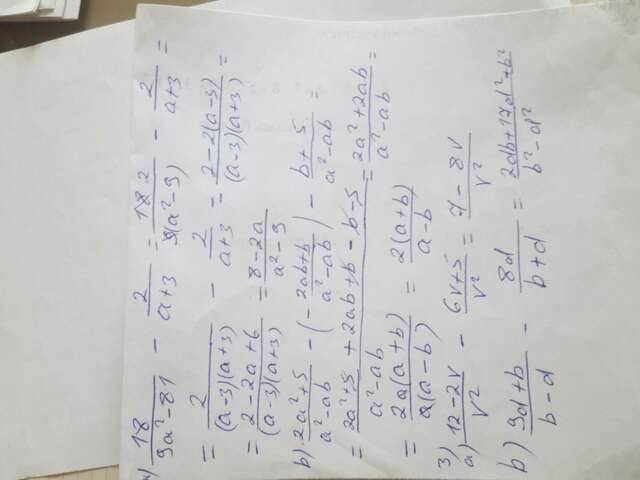 а) 18/(9a²-81) - 2/(a+3) = 18 2/(9(a²-9)) - 2/(a+3) =
= 2/((a-3)(a+3)) - 2/(a+3) = (2-2(a-3))/((a-3)(a+3)) =
= (2-2a+6)/((a-3)(a+3)) = (8-2a)/(a²-9)
b) (2a²+5)/(a²-ab) - (- (2ab+b)/(a²-ab)) - (b+5)/(a²-ab) =
= (2a²+5+2ab+b-b-5)/(a²-ab) = (2a²+2ab)/(a²-ab) =
= (2a(a+b))/(a(a-b)) = (2(a+b))/(a-b)
3)
a) (12-2v)/v² - (6v+5)/v² = (7-8v)/v²
b) (9d+b)/(b-d) - 8d/(b+d) = (2db+17d²+b²)/(b²-d²)